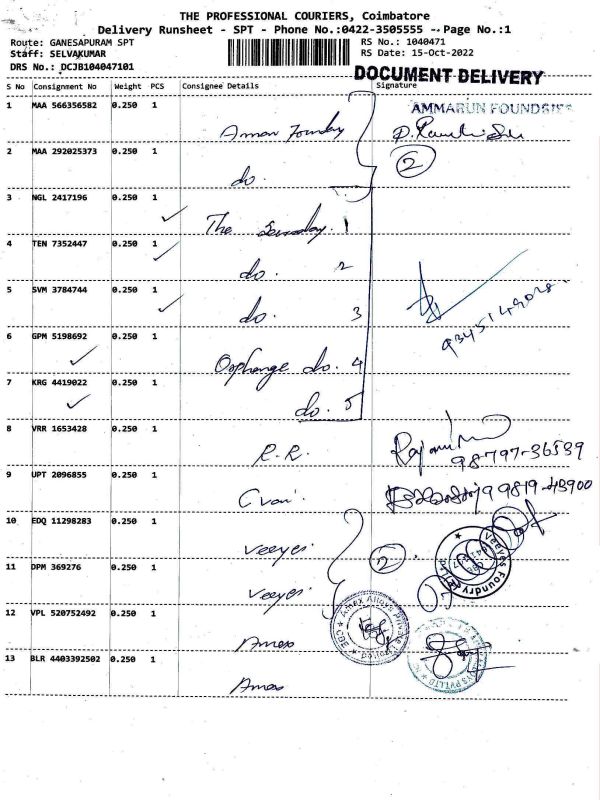 THE PROFESSIONAL COURIERS, Coimbatore
Delivery Runsheet - SPT - Phone No.:0422-3505555 -- Page No.:1
Route: GANESAPURAM SPT RS No.: 1040471
Staff: SELVAKUMAR RS Date: 15-Oct-2022
DRS No.: DCJB104047101 DOCUMENT DELIVERY
S No Consignment No Weight PCS Consignee Details Signature
AMMARUN FOUNDRIES
1 MAA 566356582 0.250 1
2 MAA 292025373 0.250 1 do. 2
3 NGL 2417196 0.250 1 The 1
4 TEN 7352447 0.250 1 do. 2
5 SVM 3784744 0.250 1 do. 3
6 GPM 5198692 0.250 1 do. 4
7 KRG 4419022 0.250 1 do. 5
8 VRR 1653428 0.250 1 R.R. 98797-36539
9 UPT 2096855 0.250 1
10 EDQ 11298283 0.250 1 Veeyes 2
Veeyes Foundry
11 DPM 369276 0.250 1 Veeyes
12 VPL 520752492 0.250 1 Amex
Amex Alloys Private
13 BLR 4403392502 0.250 1 Amex